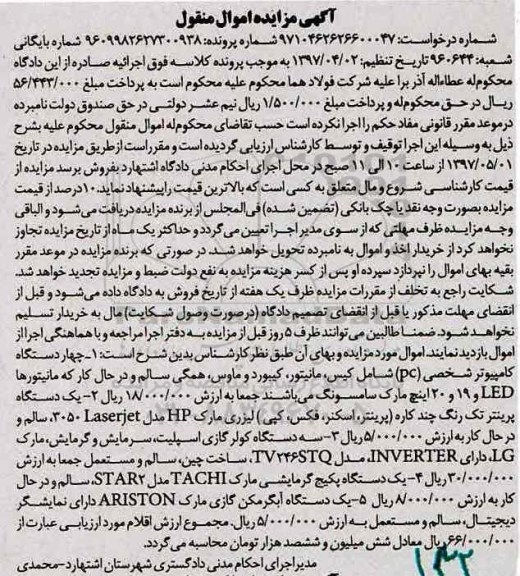 آگهی مزایده اموال منقول
شماره درخواست: ۹۷۱۰۴۶۲۶۲۶۶۰۰۰۴۷ شماره پرونده: ۹۶۰۹۹۸۲۶۲۷۳۰۰۹۳۸ شماره بایگانی
شعبه: ۹۶۰۶۴۴ تاریخ تنظیم: ۱۳۹۷/۰۴/۰۲ به موجب پرونده کلاسه فوق اجرائیه صادره از این دادگاه
محکوم‌له عطااله آذر برا علیه شرکت فولاد هما محکوم علیه محکوم است به پرداخت مبلغ ۵۶/۴۴۳/۰۰۰
ریال در حق محکوم‌له و پرداخت مبلغ ۱/۵۰۰/۰۰۰ ریال نیم عشر دولتی در حق صندوق دولت نامبرده
درموعد مقرر قانونی مفاد حکم را اجرا نکرده است حسب تقاضای محکوم‌له اموال منقول محکوم علیه بشرح
ذیل به وسیله این اجرا توقیف و توسط کارشناس ارزیابی گردیده است و مقرر است از طریق مزایده در تاریخ
۱۳۹۷/۰۵/۰۱ از ساعت ۱۰ الی ۱۱ صبح در محل اجرای احکام مدنی دادگاه اشتهارد بفروش برسد مزایده از
قیمت کارشناسی شروع و مال متعلق به کسی است که بالاترین قیمت را پیشنهاد نماید. ۱۰ درصد از قیمت
مزایده بصورت وجه نقد یا چک بانکی (تضمین شده) فی‌المجلس از برنده مزایده دریافت می‌شود و الباقی
وجه مزایده ظرف مهلتی که از سوی مدیر اجرا تعیین می‌گردد و حداکثر یک ماه از تاریخ مزایده تجاوز
نخواهد کرد از خریدار اخذ و اموال به نامبرده تحویل خواهد شد. در صورتی که برنده مزایده در موعد مقرر
بقیه بهای اموال را نپردازد سپرده او پس از کسر هزینه مزایده به نفع دولت ضبط و مزایده تجدید خواهد شد.
شکایت راجع به تخلف از مقررات مزایده ظرف یک هفته از تاریخ فروش به دادگاه داده می‌شود و قبل از
انقضای مهلت مذکور یا قبل از انقضای تصمیم دادگاه (درصورت وصول شکایت) مال به خریدار تسلیم
نخواهد شود. ضمنا طالبین می‌توانند ظرف ۵ روز قبل از مزایده به دفتر اجرا مراجعه و با هماهنگی اجرا از
اموال بازدید نمایند. اموال مورد مزایده و بهای آن طبق نظر کارشناس بدین شرح است: ۱- چهار دستگاه
کامپیوتر شخصی (pc) شامل کیس، مانیتور، کیبورد و ماوس، همگی سالم و در حال کار که مانیتورها
LED و ۱۹ و ۲۰ اینچ مارک سامسونگ می‌باشند جمعا به ارزش ۱۸/۰۰۰/۰۰۰ ریال ۲- یک دستگاه
پرینتر تک رنگ چند کاره (پرینتر، اسکنر، فکس، کپی) لیزری مارک HP مدل Laserjet ۳۰۵۰، سالم و
در حال کار به ارزش ۵/۰۰۰/۰۰۰ ریال ۳- سه دستگاه کولر گازی اسپلیت، سرمایش و گرمایش، مارک
LG، دارای INVERTER، مدل TV۲۴۶STQ، ساخت چین، سالم و مستعمل جمعا به ارزش
۳۰/۰۰۰/۰۰۰ ریال ۴- یک دستگاه پکیج گرمایشی مارک TACHI مدل STAR۲، سالم و در حال
کار به ارزش ۸/۰۰۰/۰۰۰ ریال ۵- یک دستگاه آبگرمکن گازی مارک ARISTON دارای نمایشگر
دیجیتال، سالم و مستعمل به ارزش ۵/۰۰۰/۰۰۰ ریال. مجموع ارزش اقلام مورد ارزیابی عبارت از
۶۶/۰۰۰/۰۰۰ ریال معادل شش میلیون و ششصد هزار تومان محاسبه می‌گردد.
مدیر اجرای احکام مدنی دادگستری شهرستان اشتهارد-محمدی